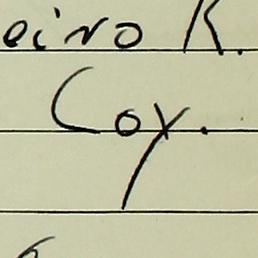 eino K.
Coy.